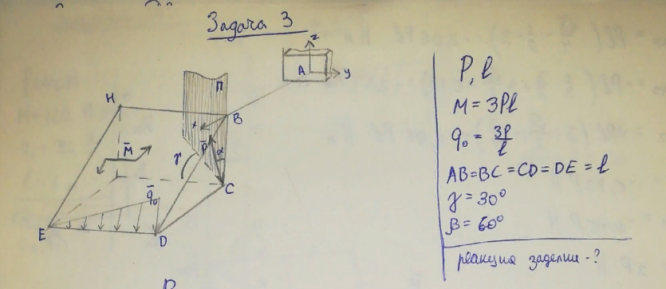 Задача 3
z
A
y
П
H
B
P̄
α
M̄
γ
C
q̄₀
E
D
P, l
M = 3Pl
q₀ = 3P/l
AB=BC=CD=DE=l
γ = 30°
β = 60°
реакция заделки -?